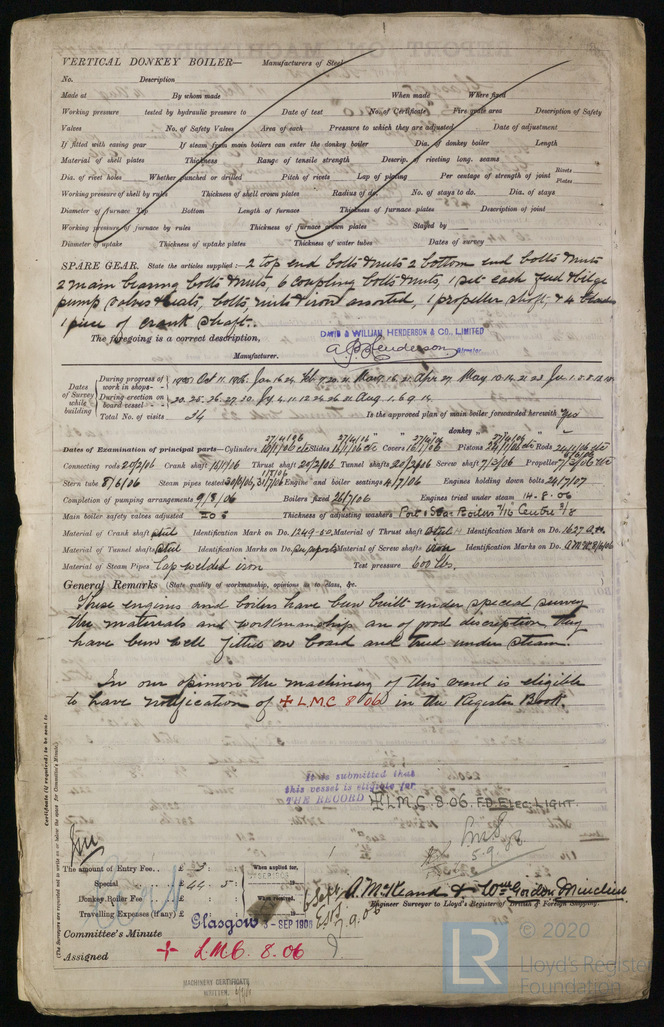 VERTICAL DONKEY BOILER— Manufacturers of Steel
No. Description
Made at By whom made When made Where fixed
Working pressure tested by hydraulic pressure to Date of test No. of Certificate Fire grate area Description of Safety
Valves No. of Safety Valves Area of each Pressure to which they are adjusted Date of adjustment
If fitted with easing gear If steam from main boilers can enter the donkey boiler Dia. of donkey boiler Length
Material of shell plates Thickness Range of tensile strength Descrip. of riveting long. seams
Dia. of rivet holes Whether punched or drilled Pitch of rivets Lap of plating Per centage of strength of joint Rivets Plates
Working pressure of shell by rules Thickness of shell crown plates Radius of do. No. of stays to do. Dia. of stays
Diameter of furnace Top Bottom Length of furnace Thickness of furnace plates Description of joint
Working pressure of furnace by rules Thickness of furnace crown plates Stayed by
Diameter of uptake Thickness of uptake plates Thickness of water tubes Dates of survey
SPARE GEAR. State the articles supplied:— 2 top end bolts & nuts 2 bottom end bolts & nuts
2 main bearing bolts & nuts, 6 coupling bolts & nuts, 1 set each feed & bilge
pump valves & seats, bolts, nuts & iron assorted, 1 propeller shaft, & 4 blades
1 piece of crank shaft.
The foregoing is a correct description,
DAVID & WILLIAM HENDERSON & CO., LIMITED
Manufacturer. Henderson Director
Dates of Survey while building
During progress of work in shops-- 1905 Oct 11. 1906. Jan 16. 24 Feb 7. 20. 21 Mar 7. 16. 21 Apr 27. May 10. 14. 21. 23 Ju 1. 5. 8. 12. 18
During erection on board vessel--- 20. 25. 26. 27. 30 Jy 4. 11. 12. 24. 26. 31 Aug. 1. 6. 9. 14.
Total No. of visits 34 Is the approved plan of main boiler forwarded herewith Yes
" " " donkey " " "
Dates of Examination of principal parts—Cylinders Slides Covers Pistons Rods
Connecting rods 20/2/06 Crank shaft 16/1/06 Thrust shaft 20/2/06 Tunnel shafts 20/2/06 Screw shaft 7/2/06 Propeller
Stern tube 8/6/06 Steam pipes tested Engine and boiler seatings 4/7/06 Engines holding down bolts 24/7/07
Completion of pumping arrangements 9/8/06 Boilers fixed 26/7/06 Engines tried under steam 14.8.06
Main boiler safety valves adjusted Thickness of adjusting washers Port & Star Boilers 7/16 Centre 3/8
Material of Crank shaft steel Identification Mark on Do. Material of Thrust shaft Steel Identification Mark on Do. 1627
Material of Tunnel shafts Steel Identification Marks on Do. Material of Screw shafts iron Identification Marks on Do.
Material of Steam Pipes Lap welded iron Test pressure 600 lbs.
General Remarks (State quality of workmanship, opinions as to class, &c.
These engines and boilers have been built under special survey
the materials and workmanship are of good description, they
have been well fitted on board and tried under steam.
In our opinion the machinery of this vessel is eligible
to have notification of + L.M.C 8 06 in the Register Book.
Certificate (if required) to be sent to
(The Surveyors are requested not to write on or below the space for Committee's Minute.)
It is submitted that
this vessel is eligible for
THE RECORD + L.M.C. 8.06. F.D. ELEC. LIGHT.
5.9.06
The amount of Entry Fee.. £ 3 : : When applied for,
Special £ 44 : 5 :
Donkey Boiler Fee £ : : When received,
Travelling Expenses (if any) £ : :
A. McKeand & Wm Gordon
Engineer Surveyor to Lloyd's Register of British & Foreign Shipping.
Committee's Minute Glasgow 3 - SEP 1906
Assigned + L.M.C. 8.06
MACHINERY CERTIFICATE
WRITTEN.
LR
© 2020
Lloyd's Register
Foundation